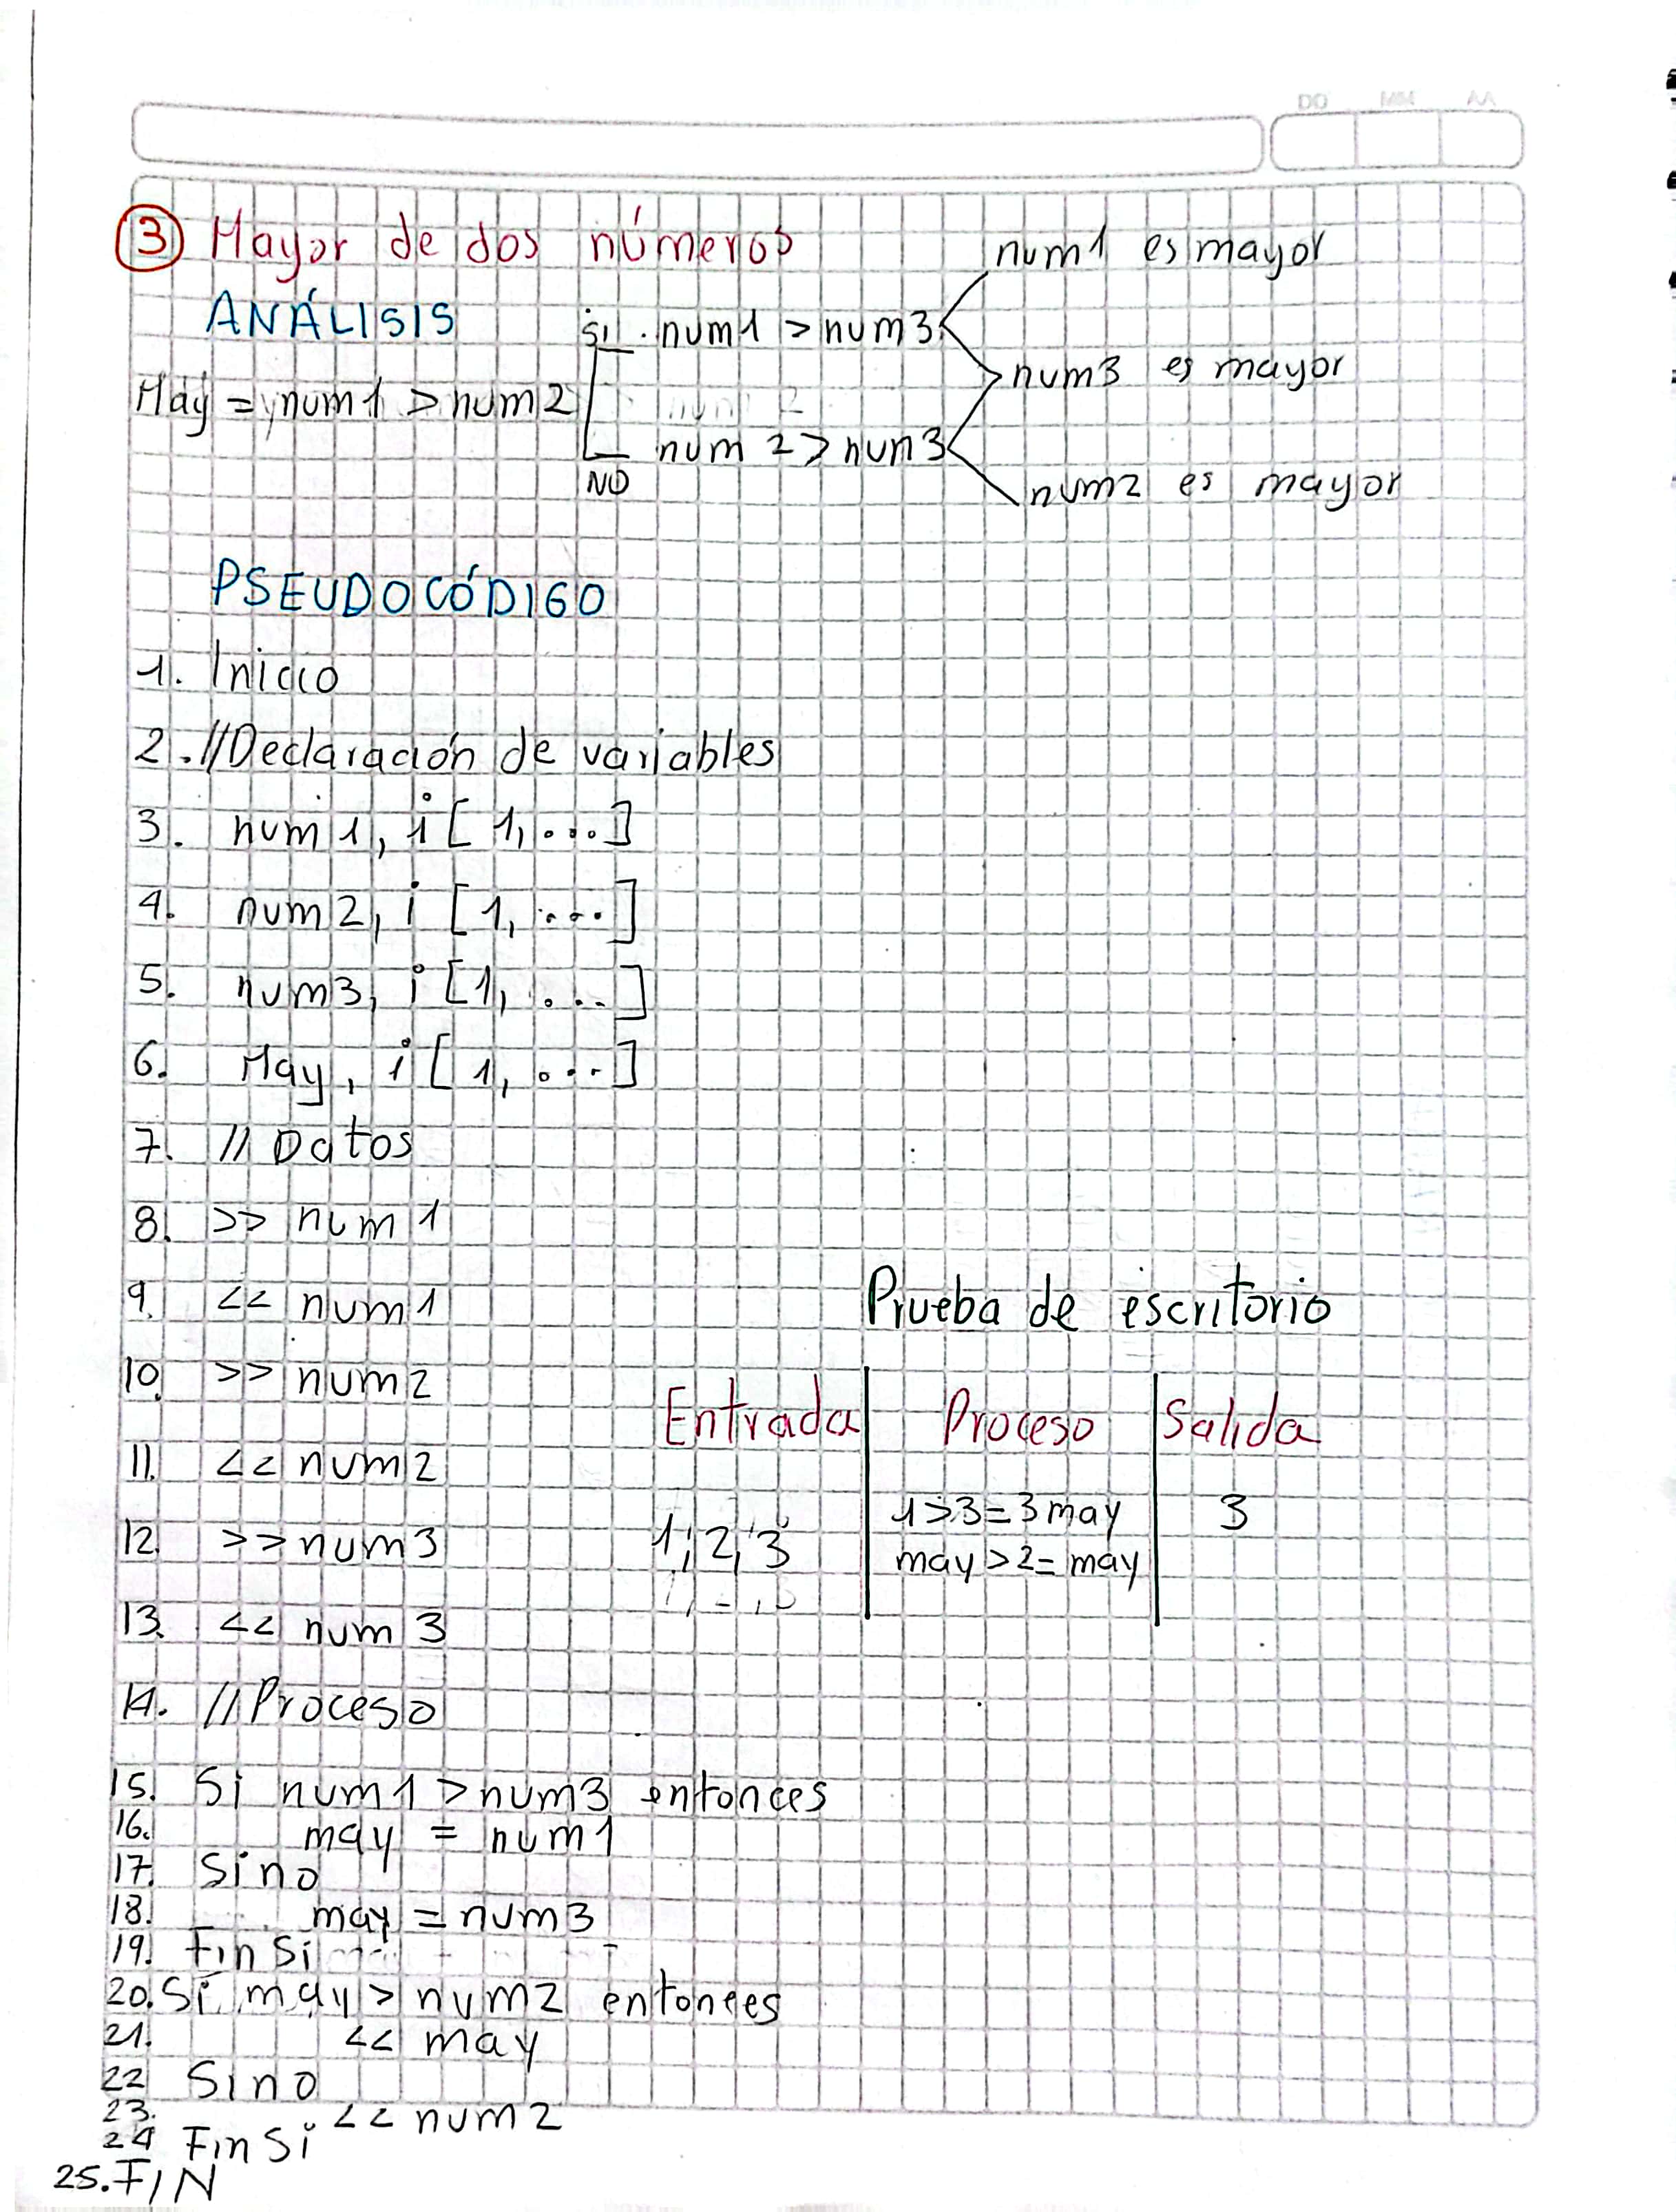 DD MM AA
3 Mayor de dos números
ANÁLISIS
May = num1 > num2
SI
num1 > num3
num1 es mayor
num3 es mayor
NO
num2 > num3
num2 es mayor
PSEUDOCÓDIGO
1. Inicio
2. //Declaración de variables
3. num1, i [1, ...]
4. num2, i [1, ...]
5. num3, i [1, ...]
6. May, i [1, ...]
7. // Datos
8. >> num1
9. << num1
10. >> num2
11. << num2
12. >> num3
13. << num3
14. //Proceso
15. Si num1 > num3 entonces
16. may = num1
17. Sino
18. may = num3
19. Fin Si
20. Si may > num2 entonces
21. << may
22 Sino
23. << num2
24 Fin Si
25. FIN
Prueba de escritorio
Entrada Proceso Salida
1, 2, 3 1>3=3 may 3
may >2= may